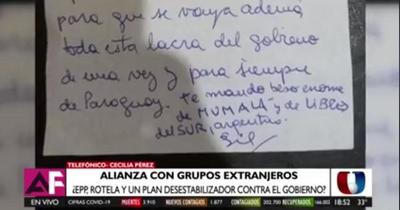 para que se vaya además
toda esta lacra del gobierno
de una vez y para siempre
de Paraguay. te mando beso enorme
de MUMALÁ y de LIBRES
del SUR, argentina.
TELEFÓNICO- CECILIA PÉREZ
AF
ALIANZA CON GRUPOS EXTRANJEROS
¿EPP, ROTELA Y UN PLAN DESESTABILIZADOR CONTRA EL GOBIERNO?
U
EN VIVO
CIFRAS COVID-19
MUERTES
NUEVOS CONTAGIOS
TOTAL CONTAGIADOS
18:52
33°